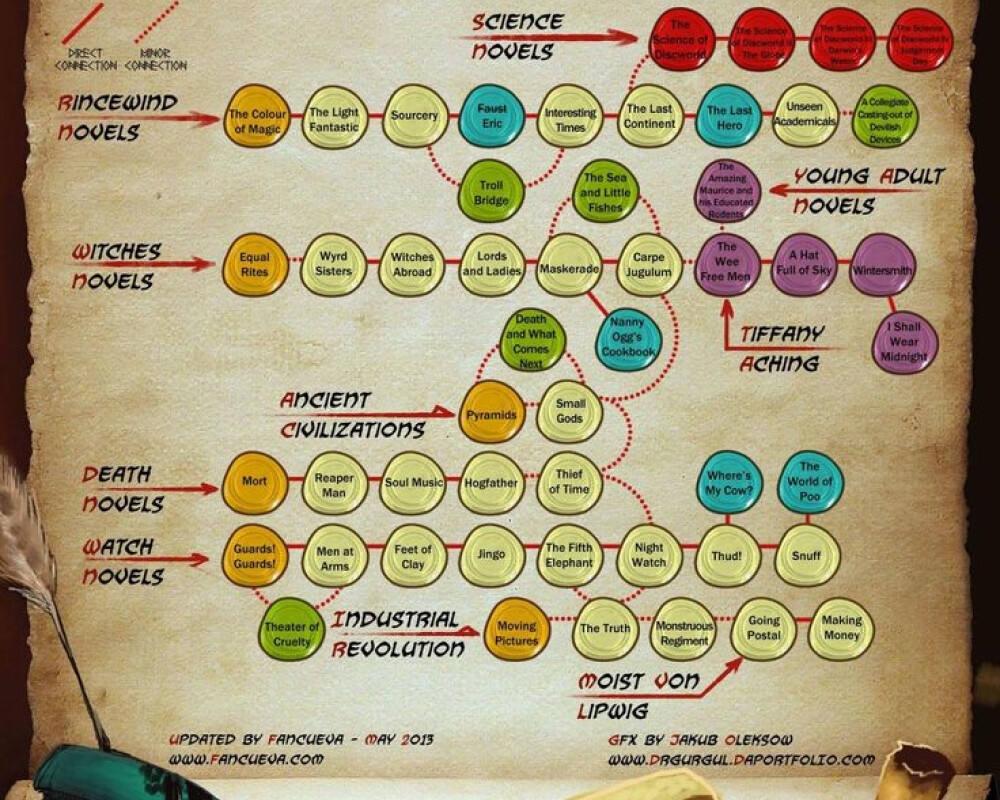 DIRECT
CONNECTION
MINOR
CONNECTION
SCIENCE
NOVELS
The
Science of
Discworld
The Science
of Discworld II
The Globe
The Science
of Discworld III
Darwin's
Watch
The Science
of Discworld IV
Judgement
Day
RINCEWIND
NOVELS
The Colour
of Magic
The Light
Fantastic
Sourcery
Faust
Eric
Interesting
Times
The Last
Continent
The Last
Hero
Unseen
Academicals
A Collegiate
Casting-out of
Devilish
Devices
Troll
Bridge
The Sea
and Little
Fishes
The
Amazing
Maurice and
his Educated
Rodents
YOUNG ADULT
NOVELS
WITCHES
NOVELS
Equal
Rites
Wyrd
Sisters
Witches
Abroad
Lords
and Ladies
Maskerade
Carpe
Jugulum
The
Wee
Free Men
A Hat
Full of Sky
Wintersmith
Death
and What
Comes
Next
Nanny
Ogg's
Cookbook
TIFFANY
ACHING
I Shall
Wear
Midnight
ANCIENT
CIVILIZATIONS
Pyramids
Small
Gods
DEATH
NOVELS
Mort
Reaper
Man
Soul Music
Hogfather
Thief
of Time
Where's
My Cow?
The
World of
Poo
WATCH
NOVELS
Guards!
Guards!
Men at
Arms
Feet of
Clay
Jingo
The Fifth
Elephant
Night
Watch
Thud!
Snuff
Theater of
Cruelty
INDUSTRIAL
REVOLUTION
Moving
Pictures
The Truth
Monstruous
Regiment
Going
Postal
Making
Money
MOIST VON
LIPWIG
UPDATED BY FANCUEVA - MAY 2013
WWW.FANCUEVA.COM
GFX BY JAKUB OLEKSOW
WWW.DRGURGUL.DAPORTFOLIO.COM